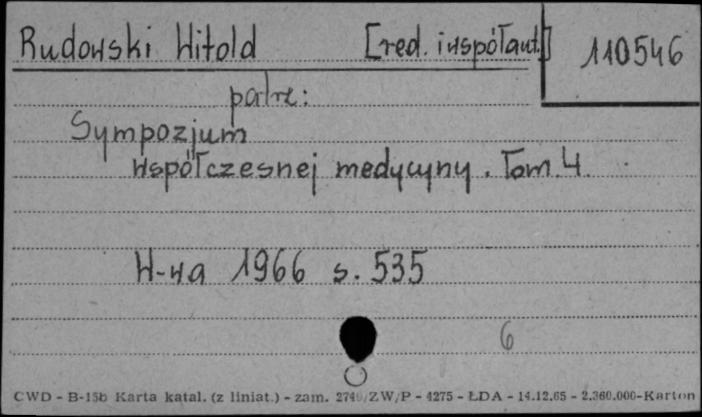 Rudowski Witold [red. i współaut.] 110546
patrz:
Sympozjum
współczesnej medycyny. Tom 4.
W-wa 1966 s. 535
6
CWD - B-15b Karta katal. (z liniat.) - zam. 2740/ZW/P - 4275 - ŁDA - 14.12.65 - 2.360.000-Karton